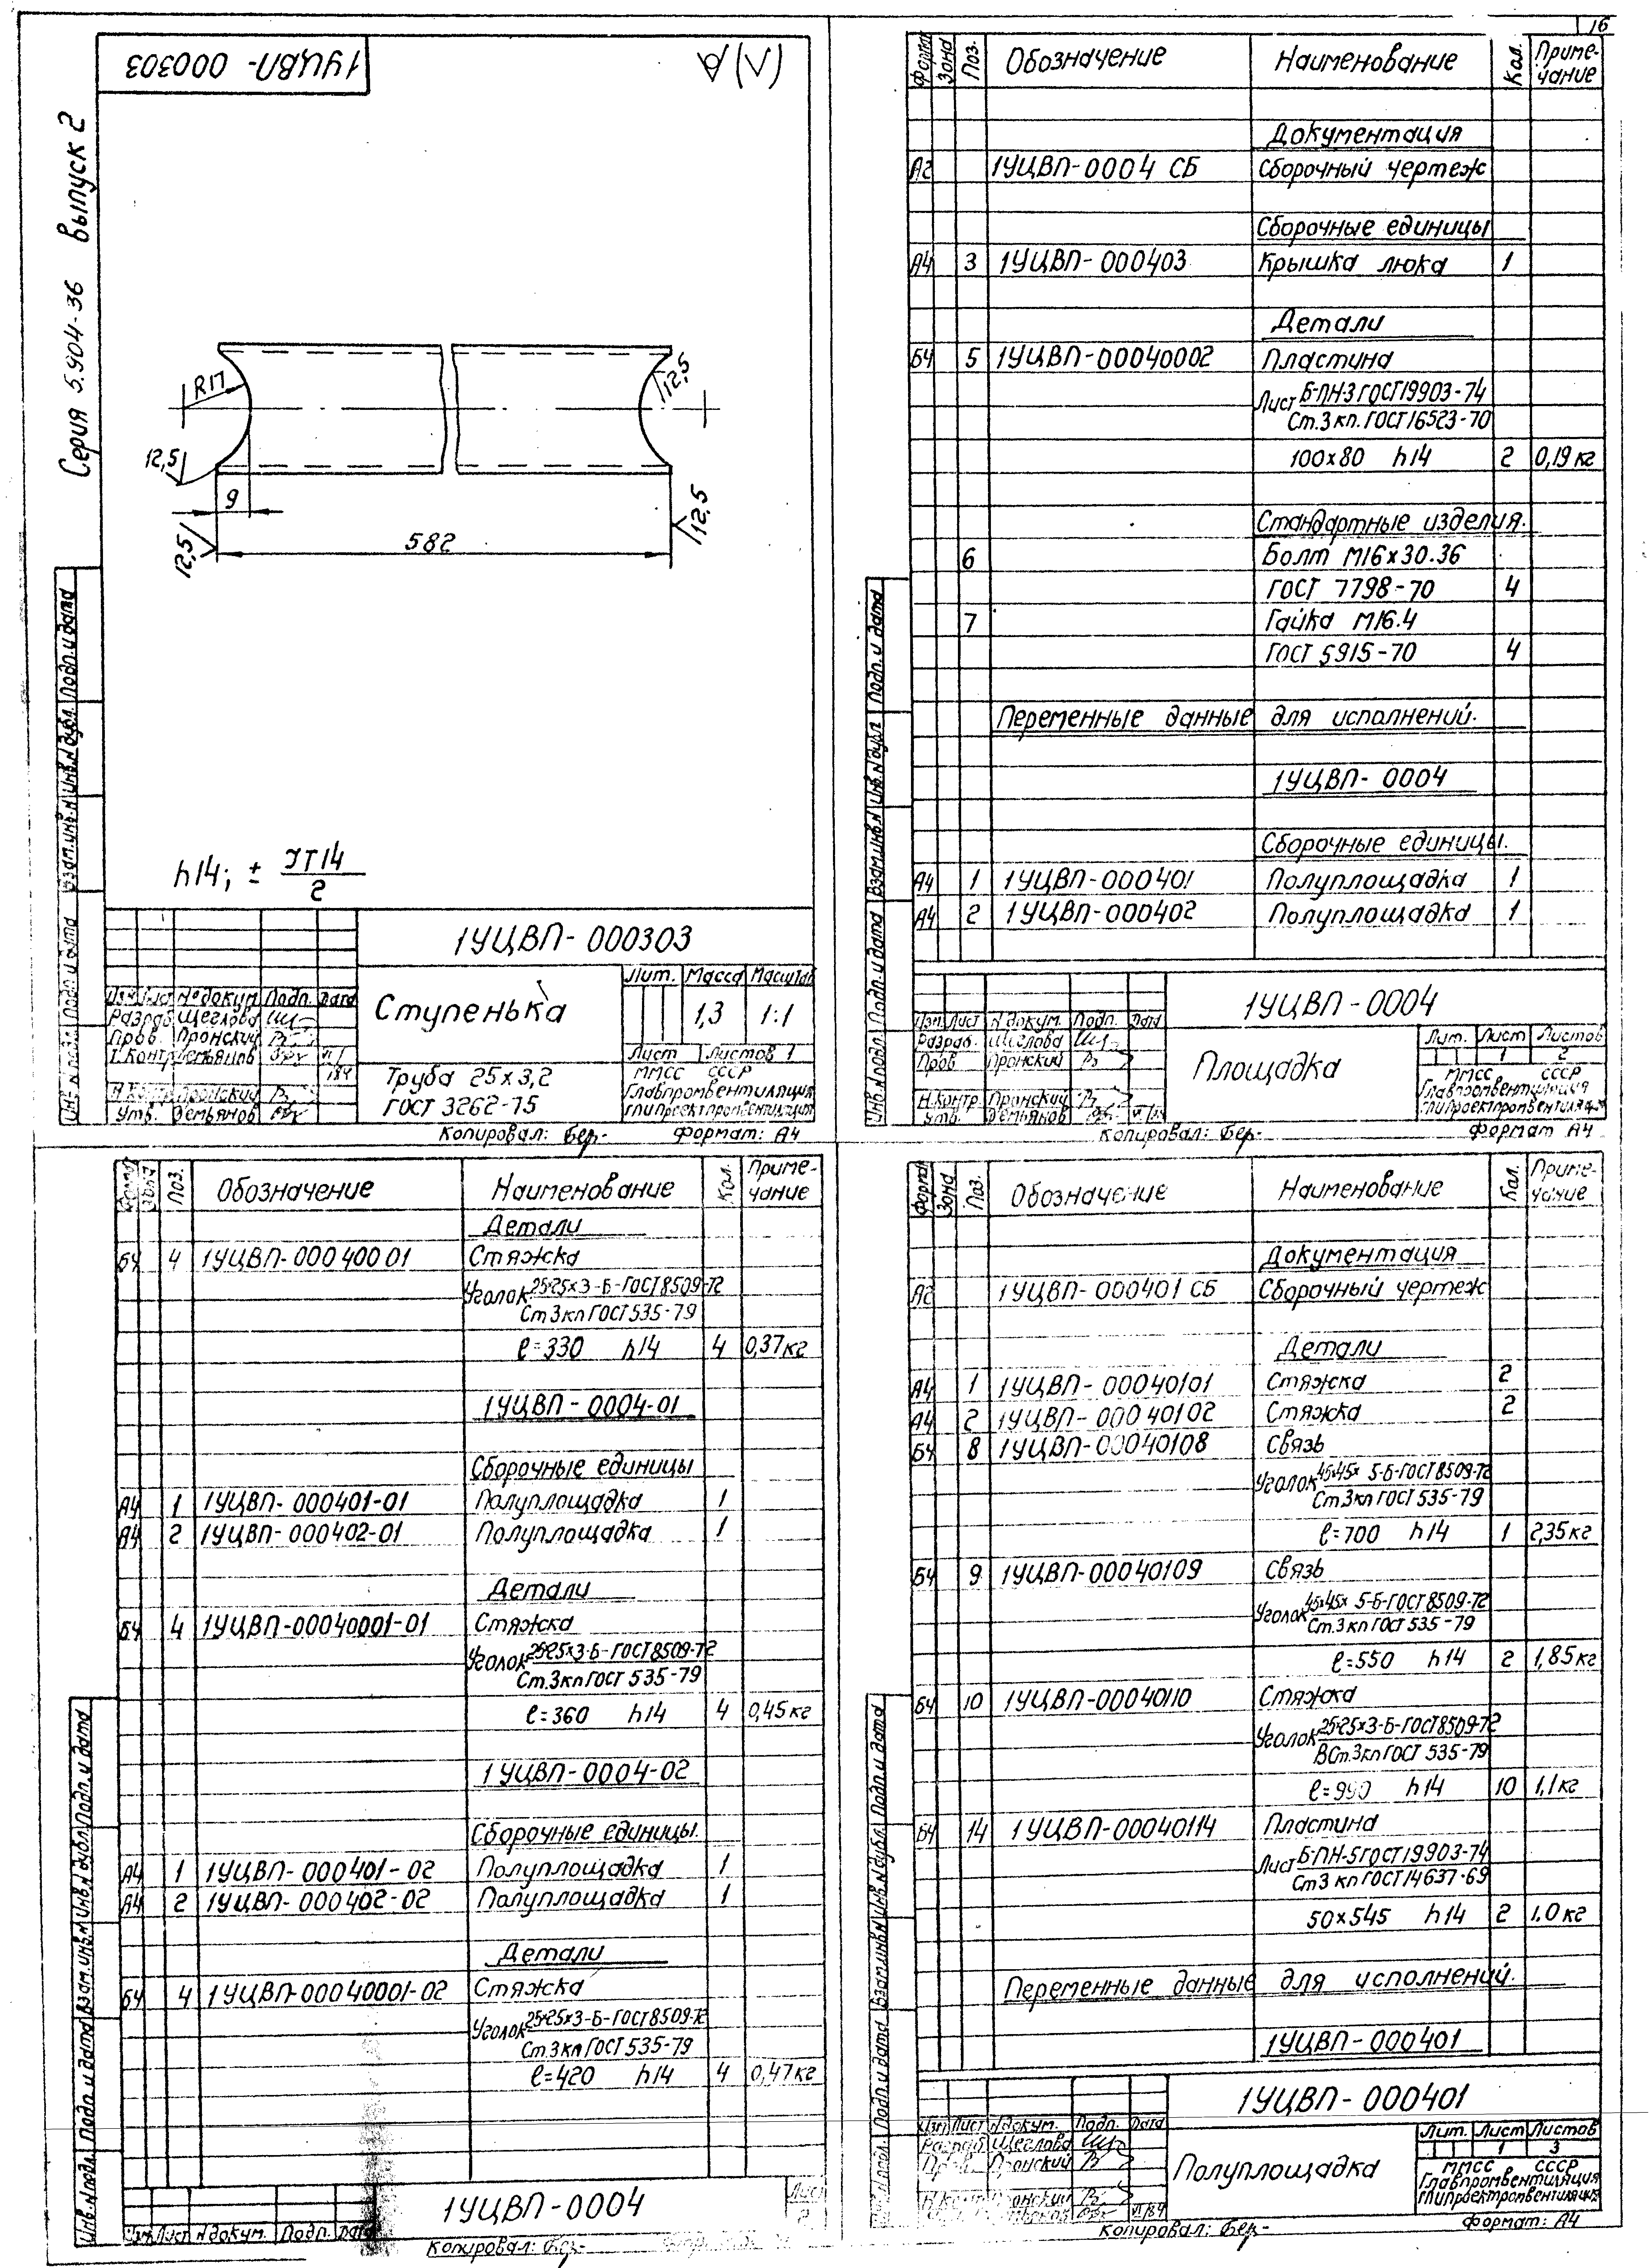 16
1УЦВП- 000303
(√)
Серия 5.904-36 выпуск 2
R17
12,5
12,5
9
582
12,5
12,5
h14; ± IT14
2
Инв.N подл. Подп. и дата Взам.инв.N Инв.N дубл. Подп. и дата
1УЦВП- 000303
Изм Лист №докум Подп. Дата
Разраб Щеглова
Пров. Пронский
Т.Контр Демьянов VI
184
Н.Контр Пронский
Утв. Демьянов
Ступенька
Лит. Масса Масштаб
1,3 1:1
Лист Листов 1
Труба 25×3,2
ГОСТ 3262-75
ММСС СССР
Главпромвентиляция
ГПИПроектпромвентиляция
Копировал: Бер- Формат: А4
Формат Зона Поз. Обозначение Наименование Кол. Приме-
чание
Документация
А2 1УЦВП-0004 СБ Сборочный чертеж
Сборочные единицы
А4 3 1УЦВП-000403 Крышка люка 1
Детали
Б4 5 1УЦВП-00040002 Пластина
Лист Б-ПН-3 ГОСТ19903-74
Ст.3 кп. ГОСТ16523-70
100×80 h14 2 0,19 кг
Стандартные изделия.
6 Болт М16×30.36
ГОСТ 7798-70 4
7 Гайка М16.4
ГОСТ 5915-70 4
Переменные данные для исполнений.
1УЦВП- 0004
Сборочные единицы.
А4 1 1УЦВП-000401 Полуплощадка 1
А4 2 1УЦВП-000402 Полуплощадка 1
Инв.N подл. Подп. и дата Взам.инв.N Инв.N дубл Подп. и дата
1УЦВП-0004
Изм. Лист N докум. Подп. Дата
Разраб. Щеглова
Пров Пронский
Н.Контр. Пронский
Утв. Демьянов
Площадка
Лит. Лист Листов
1 2
ММСС СССР
Главпромвентиляция
ГПИПроектпромвентиляция
Копировал: Бер- Формат А4
Формат Зона Поз. Обозначение Наименование Кол. Приме-
чание
Детали
Б4 4 1УЦВП-00040001 Стяжка
Уголок 25×25×3-Б-ГОСТ8509-72
Ст3кп ГОСТ535-79
ℓ=330 h14 4 0,37кг
1УЦВП-0004-01
Сборочные единицы
А4 1 1УЦВП-000401-01 Полуплощадка 1
А4 2 1УЦВП-000402-01 Полуплощадка 1
Детали
Б4 4 1УЦВП-00040001-01 Стяжка
Уголок 25×25×3-Б-ГОСТ8509-72
Ст.3кп ГОСТ 535-79
ℓ=360 h14 4 0,45кг
1УЦВП-0004-02
Сборочные единицы.
А4 1 1УЦВП-000401-02 Полуплощадка 1
А4 2 1УЦВП-000402-02 Полуплощадка 1
Детали
Б4 4 1УЦВП-00040001-02 Стяжка
Уголок 25×25×3-Б-ГОСТ8509-72
Ст.3кп ГОСТ535-79
ℓ=420 h14 4 0,47кг
Инв.N подл. Подп. и дата Взам.инв.N Инв.N дубл. Подп. и дата
Изм Лист N докум. Подп. Дата
1УЦВП-0004
Лист
2
Копировал: Бер-
Формат Зона Поз. Обозначение Наименование Кол. Приме-
чание
Документация
А2 1УЦВП-000401 СБ Сборочный чертеж
Детали
А4 1 1УЦВП-00040101 Стяжка 2
А4 2 1УЦВП-00040102 Стяжка 2
Б4 8 1УЦВП-00040108 Связь
Уголок 45×45×5-Б-ГОСТ8509-72
Ст.3кп ГОСТ 535-79
ℓ=700 h14 1 2,35кг
Б4 9 1УЦВП-00040109 Связь
Уголок 45×45×5-Б-ГОСТ8509-72
Ст.3кп ГОСТ 535-79
ℓ=550 h14 2 1,85кг
Б4 10 1УЦВП-00040110 Стяжка
Уголок 25×25×3-Б-ГОСТ8509-72
ВСт.3кп ГОСТ 535-79
h14 10 1,1кг
Б4 14 1УЦВП-00040114 Пластина
Лист Б-ПН-5 ГОСТ19903-74
Ст3 кп ГОСТ14637-69
50×545 h14 2 1.0кг
Переменные данные для исполнений.
1УЦВП-000401
Подп. и дата Взам.инв.N Инв.N дубл. Подп. и дата
1УЦВП-000401
Изм Лист N докум. Подп. Дата
Разраб Щеглова
Пров. Пронский
Н.Контр Пронский
VI 84
Полуплощадка
Лит. Лист Листов
1 3
ММСС СССР
Главпромвентиляция
ГПИПроектпромвентиляция
Копировал: Бер- Формат: А4